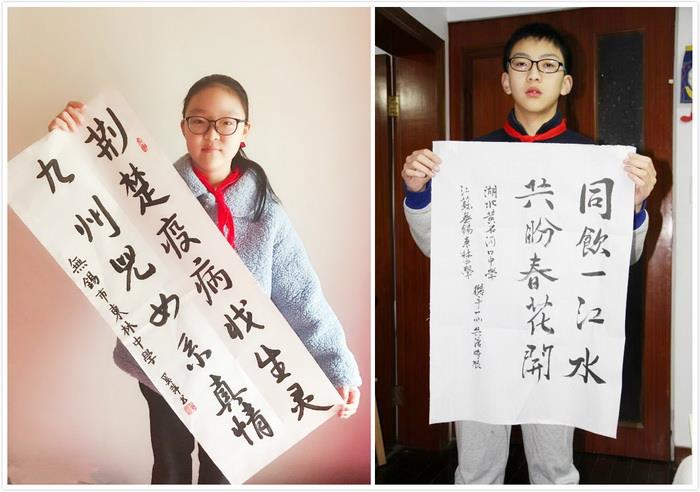 荆楚疫病戕生灵
九州兒女系真情
無錫市東林中學
同飲一江水
共盼春花開
湖北黄石河口中學
江蘇無錫東林中學
携手一心 共